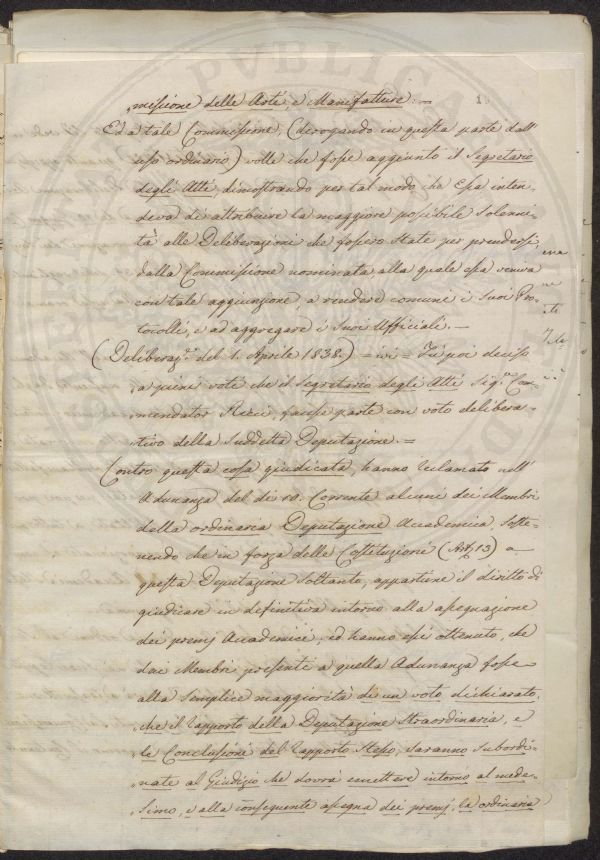 „missione delle Arti, e Manifatture.=
Ed a tale Commissione, (derogando in questa parte dall'
uso ordinario) volle che fosse aggiunto il Segretario
degli Atti, dimostrando per tal modo che Essa inten-
deva di attribuire la maggiore possibile Solenni-
tà alle Deliberazioni che fossero State per prendersi
dalla Commissione nominata alla quale essa veniva
con tale aggiunzione a rendere comuni i Suoi Pro-
tocolli, e ad aggregare i Suoi Ufficiali. —
(Deliberaz.e del 1. Aprile 1838.) = ivi = Fu poi deciso
„a pieni voti che il Segretario degli Atti Sig.r Com-
„mendator facesse parte con voto delibera-
„tivo della Suddetta Deputazione. =
Contro questa cosa giudicata, hanno reclamato nell'
Adunanza del dì 10. Corrente alcuni dei Membri
della ordinaria Deputazione Accademica, Soste-
nendo che in forza delle Costituzioni (Art. 13) a
questa Deputazione Soltanto, appartiene il diritto di
giudicare in definitiva intorno alla assegnazione
dei premj Accademici, ed hanno essi ottenuto, che
dai Membri presenti a quella Adunanza fosse
alla Semplice maggiorità di un voto dichiarato,
che il rapporto della Deputazione Straordinaria, e
le Conclusioni del rapporto Stesso, Saranno Subordi-
nate al Giudizio che dovrà emettere intorno al mede-
Simo, e alla conseguente assegna dei premj, la ordinaria